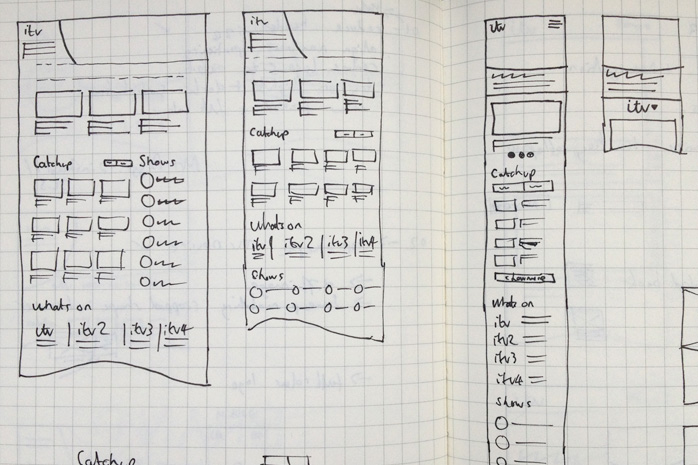 itv
Catchup
Shows
whats on
itv | itv2 | itv3 | itv4
itv
Catchup
Whats on
itv | itv2 | itv3 | itv4
Shows
itv
Catchup
show more
Whats on
itv
itv2
itv3
itv4
Shows
itv♥
Catchup